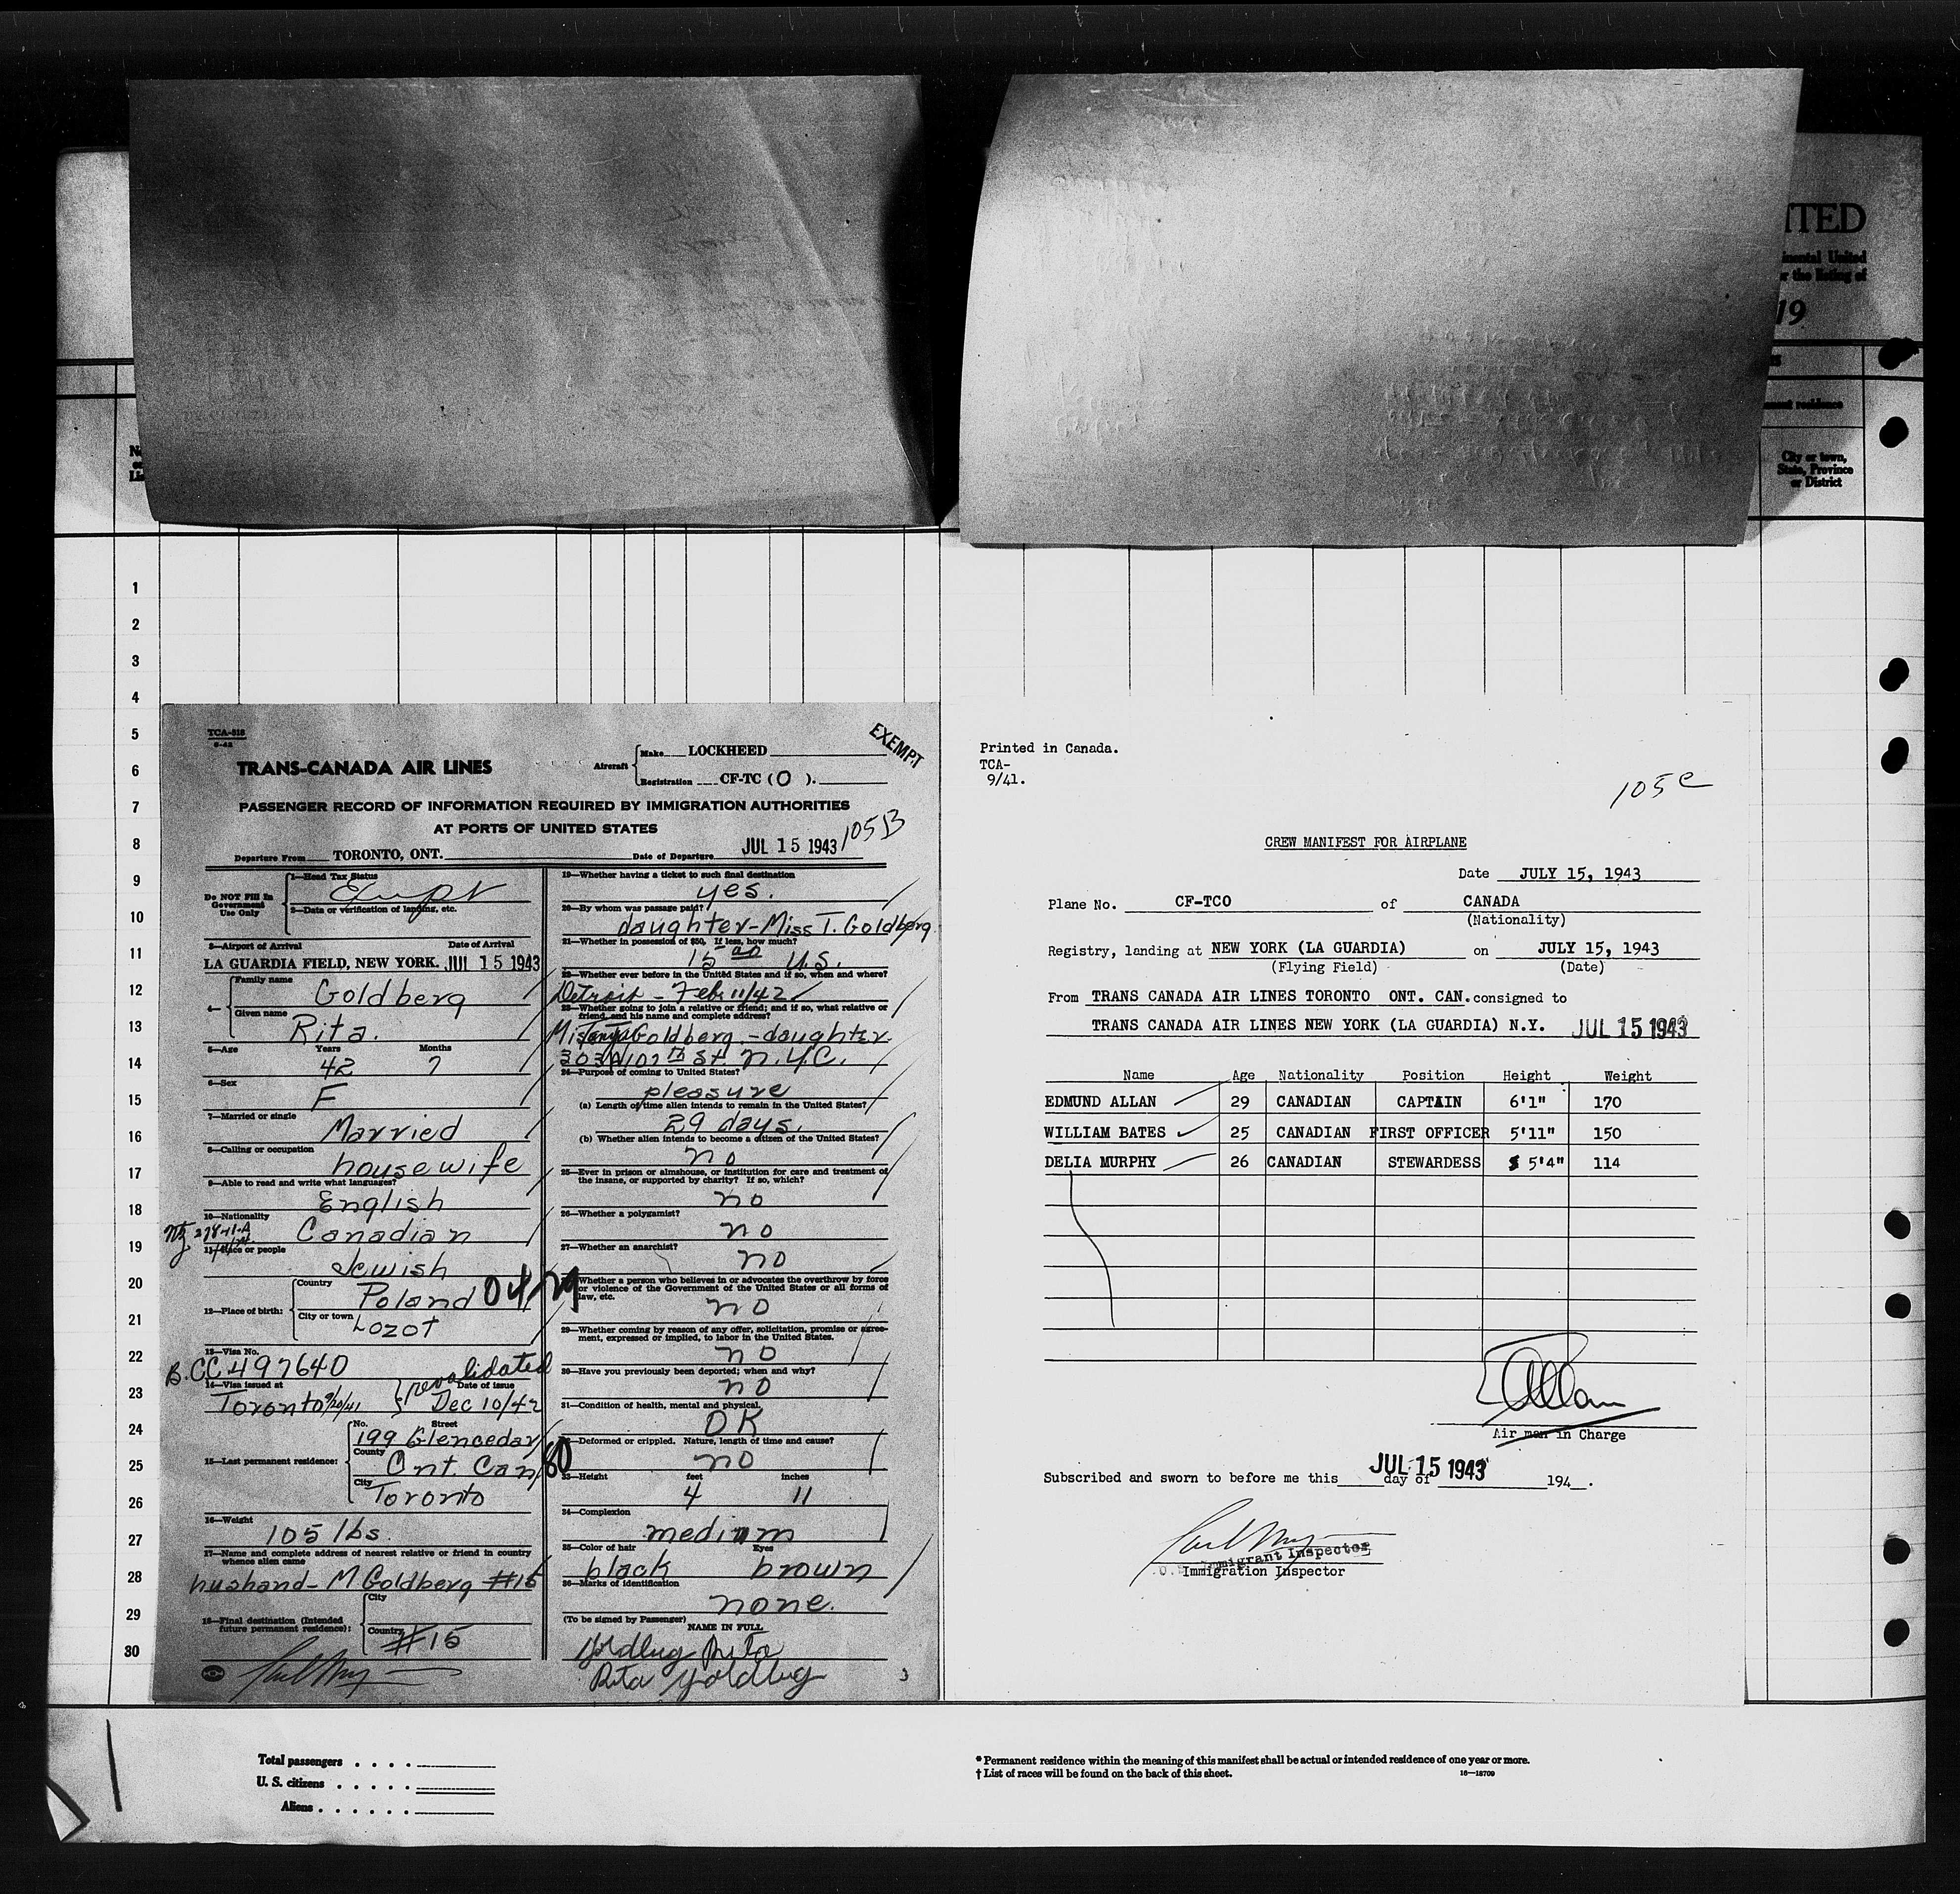 ITED
inental United
r the listing of
19
City or town,
State, Province
or District
1
2
3
4
5
6
7
8
9
10
11
12
13
14
15
16
17
18
19
20
21
22
23
24
25
26
27
28
29
30
TCA-818
6-42
EXEMPT
TRANS-CANADA AIR LINES
Aircraft
Make LOCKHEED
Registration CF-TC (O ).
PASSENGER RECORD OF INFORMATION REQUIRED BY IMMIGRATION AUTHORITIES
AT PORTS OF UNITED STATES
105B
Departure From TORONTO, ONT. Date of Departure JUL 15 1943
Do NOT Fill In
Government
Use Only
1—Head Tax Status
2—Data or verification of landing, etc.
3—Airport of Arrival Date of Arrival
LA GUARDIA FIELD, NEW YORK. JUL 15 1943
4— Family name
Goldberg
Given name
Rita.
5—Age Years Months
42 7
6—Sex
F
7—Married or single
Married
8—Calling or occupation
housewife
9—Able to read and write what languages?
English
10—Nationality
Canadian
11—Race or people
Jewish
12—Place of birth: Country
Poland
City or town
Lozot
13—Visa No.
B.CC 497640
revalidated
14—Visa issued at Date of issue
Toronto 9/20/41 Dec 10/42
15—Last permanent residence: No. Street
199 Glencedar
County
Ont. Can
City
Toronto
60
16—Weight
105 lbs.
17—Name and complete address of nearest relative or friend in country
whence alien came
husband- M Goldberg #15
18—Final destination (Intended
future permanent residence): City
Country
#15
19—Whether having a ticket to such final destination
yes.
20—By whom was passage paid?
daughter-Miss T. Goldberg.
21—Whether in possession of $50. If less, how much?
15 00 U.S.
22—Whether ever before in the United States and if so, when and where?
Detroit - Feb. 11/42
23—Whether going to join a relative or friend; and if so, what relative or
friend, and his name and complete address?
Goldberg - daughter
303 W 107 th St. N.Y.C.
24—Purpose of coming to United States?
pleasure
(a) Length of time alien intends to remain in the United States?
29 days.
(b) Whether alien intends to become a citizen of the United States?
no
25—Ever in prison or almshouse, or institution for care and treatment of
the insane, or supported by charity? If so, which?
no
26—Whether a polygamist?
no
27—Whether an anarchist?
no
Whether a person who believes in or advocates the overthrow by force
or violence of the Government of the United States or all forms of
law, etc.
no
29—Whether coming by reason of any offer, solicitation, promise or agree-
ment, expressed or implied, to labor in the United States.
no
30—Have you previously been deported; when and why?
no
31—Condition of health, mental and physical.
OK
Deformed or crippled. Nature, length of time and cause?
no
33—Height feet inches
4 11
34—Complexion
medium
35—Color of hair Eyes
black brown
36—Marks of identification
none.
(To be signed by Passenger)
NAME IN FULL
Goldberg Rita
Rita Goldberg
3
Printed in Canada.
TCA-
9/41.
105 C
CREW MANIFEST FOR AIRPLANE
Date JULY 15, 1943
Plane No. CF-TCO of CANADA
(Nationality)
Registry, landing at NEW YORK (LA GUARDIA) on JULY 15, 1943
(Flying Field) (Date)
From TRANS CANADA AIR LINES TORONTO ONT. CAN. consigned to
TRANS CANADA AIR LINES NEW YORK (LA GUARDIA) N.Y. JUL 15 1943
Name Age Nationality Position Height Weight
EDMUND ALLAN 29 CANADIAN CAPTAIN 6'1" 170
WILLIAM BATES 25 CANADIAN FIRST OFFICER 5'11" 150
DELIA MURPHY 26 CANADIAN STEWARDESS 5'4" 114
Air man in Charge
Subscribed and sworn to before me this day of JUL 15 1943 194 .
Immigrant Inspector
Immigration Inspector
Total passengers . . . .
U. S. citizens . . . . .
Aliens . . . . . .
* Permanent residence within the meaning of this manifest shall be actual or intended residence of one year or more.
† List of races will be found on the back of this sheet.
16—18709